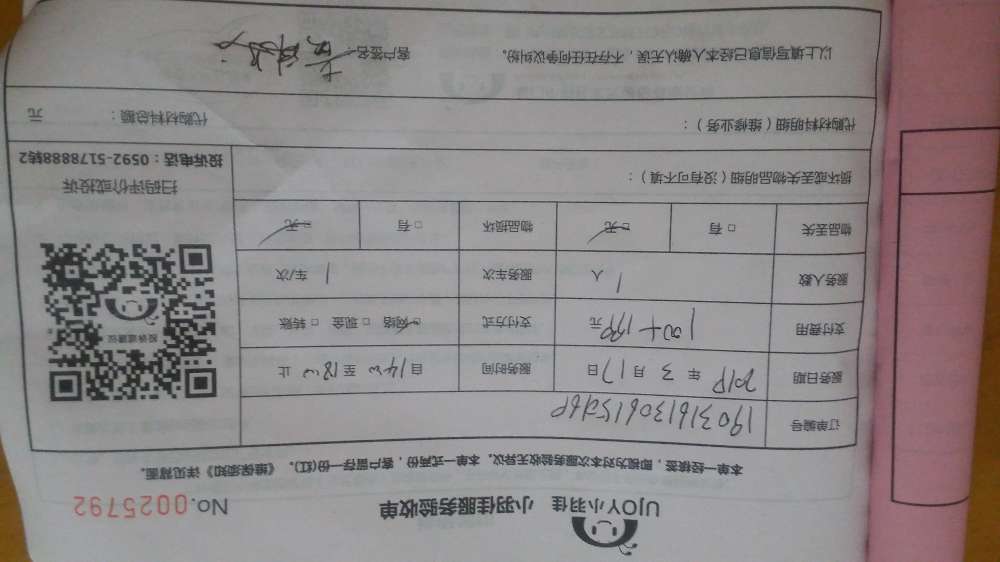 UJOY小羽佳 小羽佳服务验收单 No.0025792
本单一经核签，即视为对本次服务验收无异议。本单一式两份，客户留存一份(红)。《维保须知》详见背面。
订单编号
服务日期 2019 年 3 月 17 日 服务时间 自 14:00 至 18:00 止
支付费用 100+199 元 支付方式 网络 □ 现金 □ 转账
服务人数 1 人 服务车次 1 车/次
物品丢失 □ 有 □ 无 物品损坏 □ 有 □ 无
投诉或建议
扫码评价或投诉
投诉电话：0592-5178888转2
损坏或丢失物品明细（没有可不填）：
代购材料明细（维修业务）： 代购材料总额： 元
以上填写信息已经本人确认无误，不存在任何争议纠纷。 客户签名：